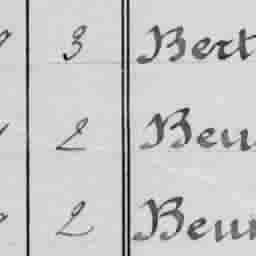 3 Bert
2 Beu
2 Beur